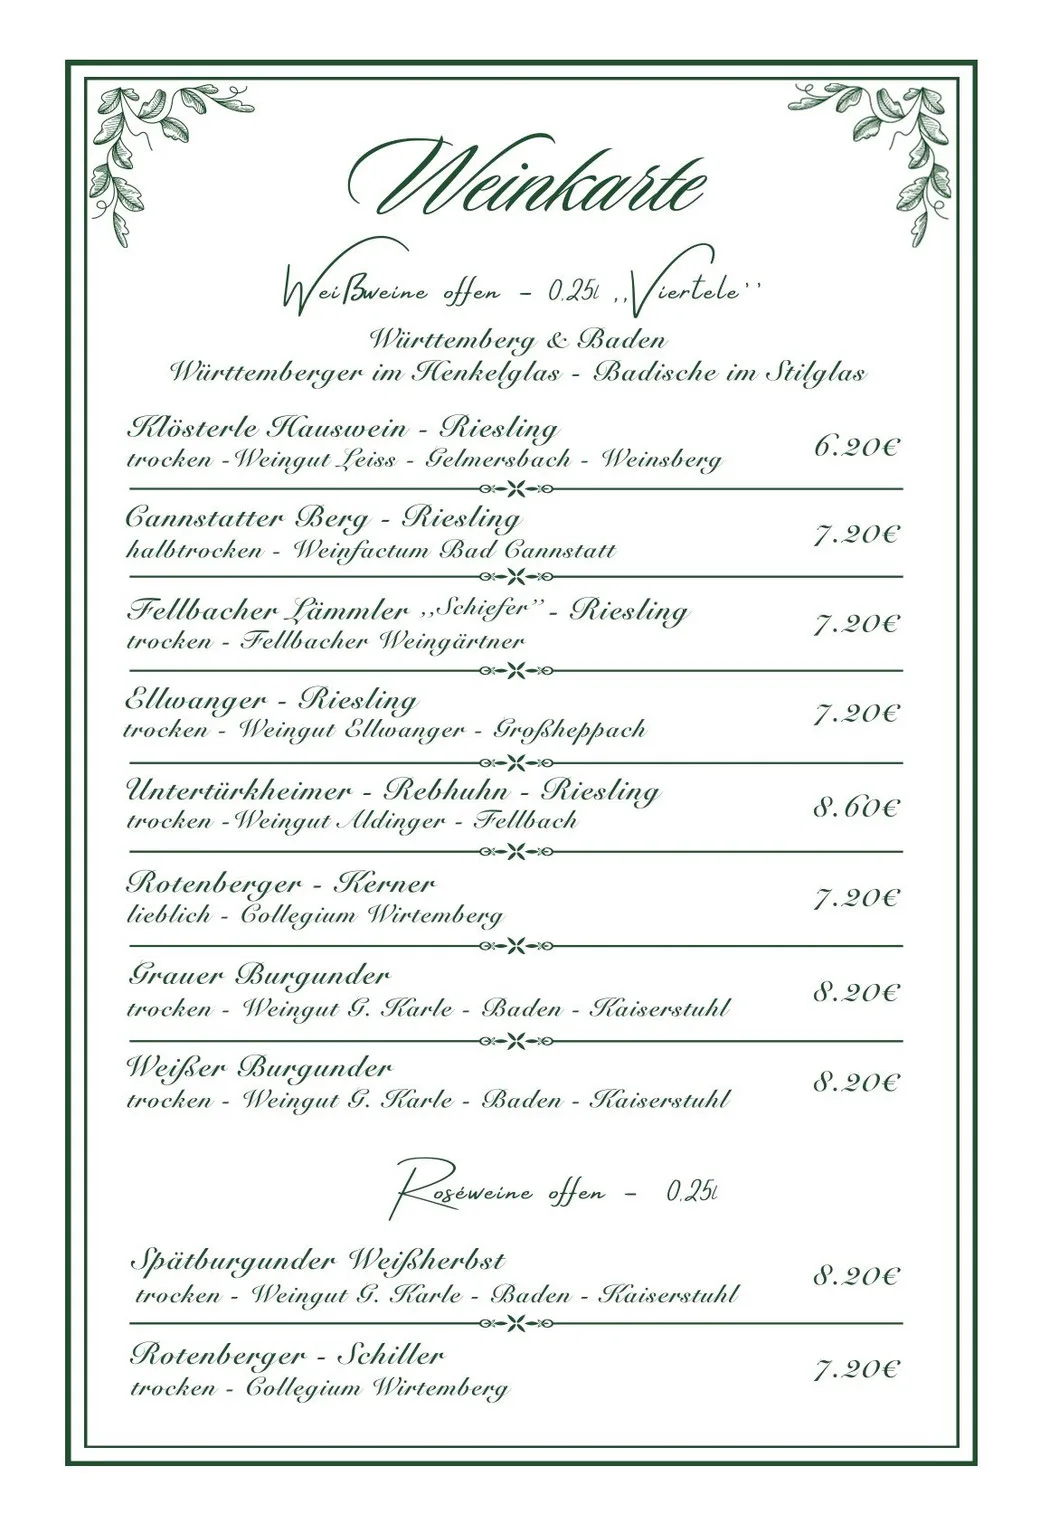 Weinkarte
Weißweine offen - 0,25l ,,Viertele''
Württemberg & Baden
Württemberger im Henkelglas - Badische im Stilglas
Klösterle Hauswein - Riesling
6.20€
trocken -Weingut Leiss - Gelmersbach - Weinsberg
Cannstatter Berg - Riesling
7.20€
halbtrocken - Weinfactum Bad Cannstatt
Fellbacher Lämmler ,,Schiefer'' - Riesling
7.20€
trocken - Fellbacher Weingärtner
Ellwanger - Riesling
7.20€
trocken - Weingut Ellwanger - Großheppach
Untertürkheimer - Rebhuhn - Riesling
8.60€
trocken -Weingut Aldinger - Fellbach
Rotenberger - Kerner
7.20€
lieblich - Collegium Wirtemberg
Grauer Burgunder
8.20€
trocken - Weingut G. Karle - Baden - Kaiserstuhl
Weißer Burgunder
8.20€
trocken - Weingut G. Karle - Baden - Kaiserstuhl
Roséweine offen - 0,25l
Spätburgunder Weißherbst
8.20€
trocken - Weingut G. Karle - Baden - Kaiserstuhl
Rotenberger - Schiller
7.20€
trocken - Collegium Wirtemberg